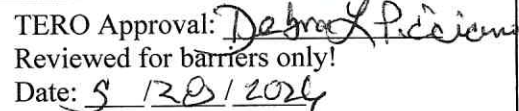 TERO Approval: Debra L Picciano
Reviewed for barriers only!
Date: 5 /28/ 2024